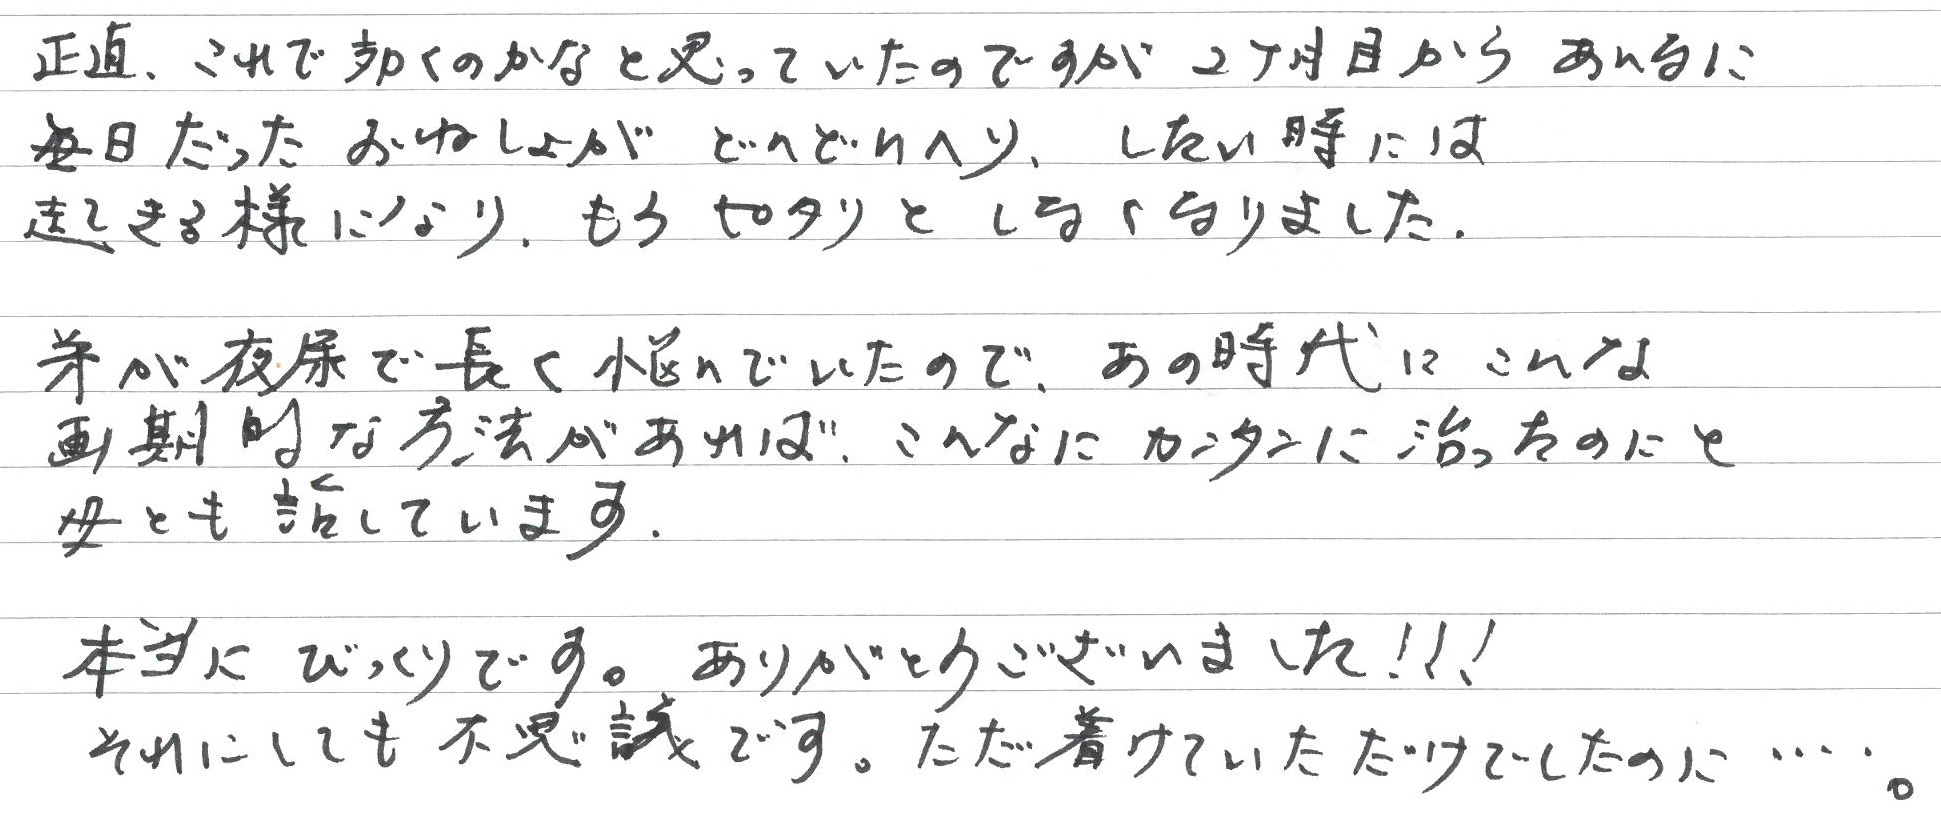 正直、これで効くのかなと思っていたのですが 2ケ月目から あんなに
毎日だった おねしょが どんどんへり、したい時には
起きる様になり、もう ピタリと しなくなりました.
弟が夜尿で長く悩んでいたので、あの時代に こんな
画期的な方法があれば、こんなに カンタンに 治ったのにと
母とも 話しています.
本当に びっくりです。ありがとうございました!!!
それにしても 不思議です。ただ着けていた だけでしたのに ‥‥。